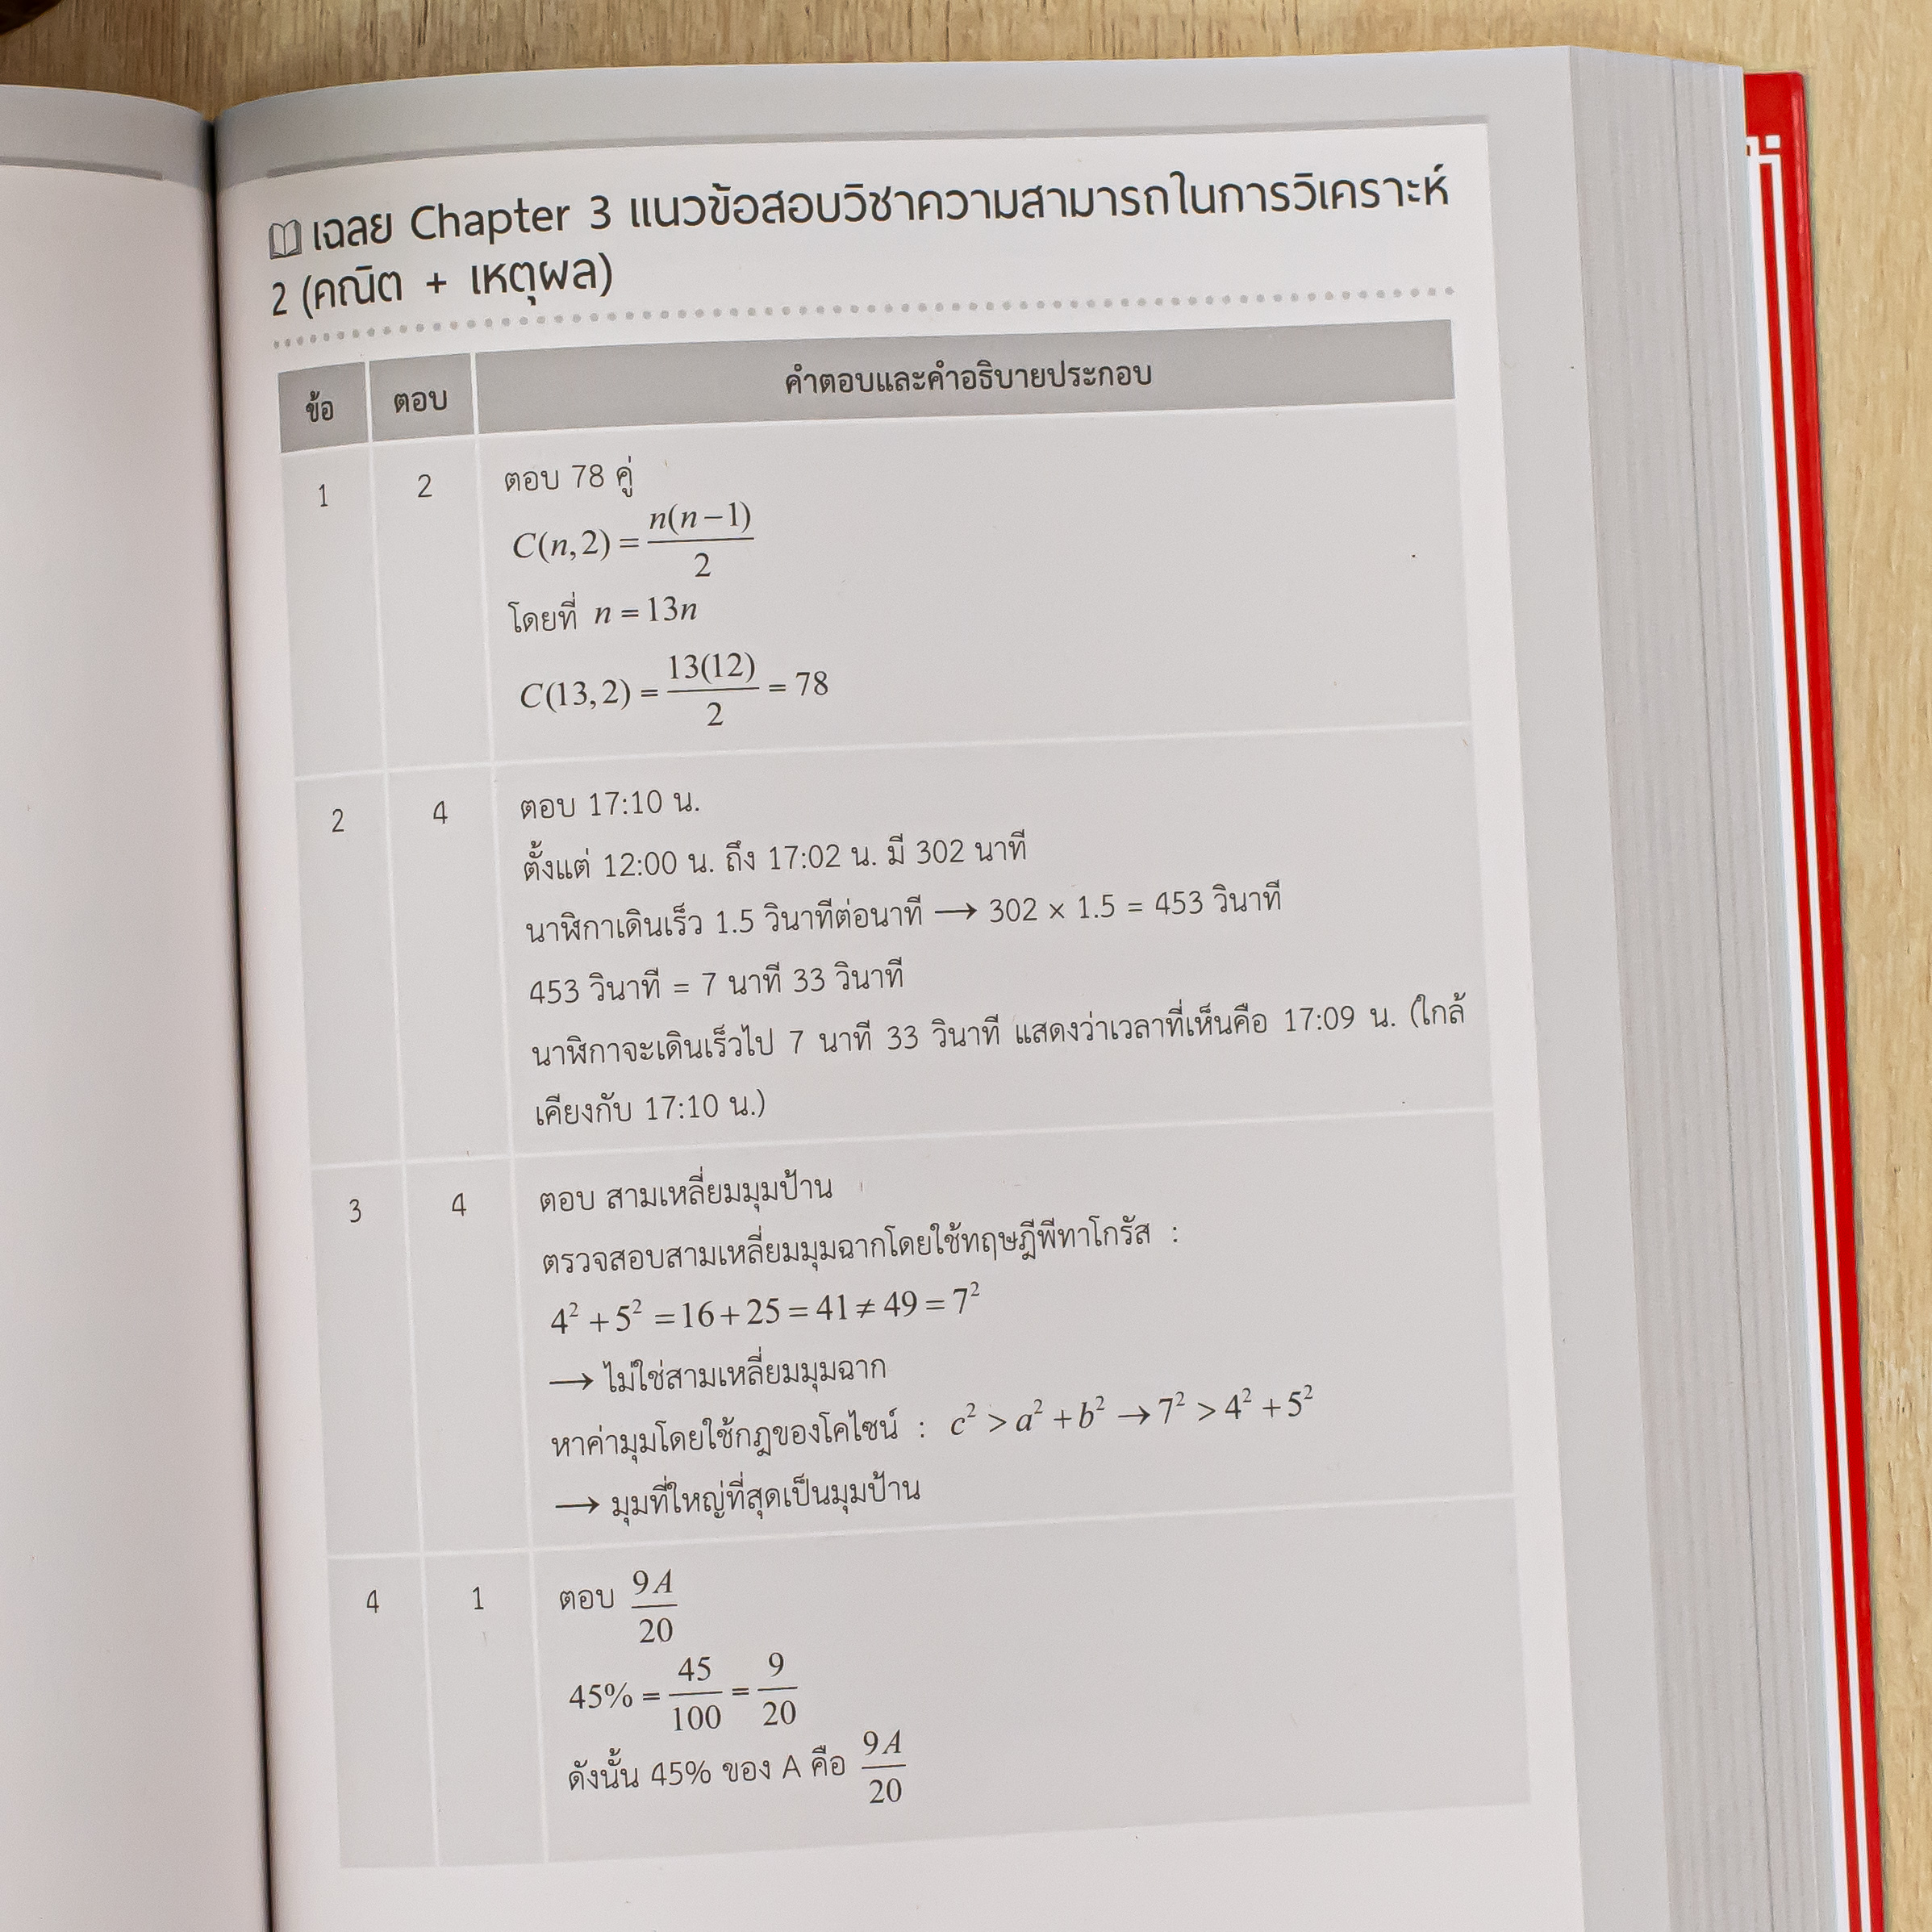 เฉลย Chapter 3 แนวข้อสอบวิชาความสามารถในการวิเคราะห์
2 (คณิต + เหตุผล)
ข้อ ตอบ คำตอบและคำอธิบายประกอบ
1 2 ตอบ 78 คู่
C(n,2) = n(n−1)/2
โดยที่ n = 13n
C(13,2) = 13(12)/2 = 78
2 4 ตอบ 17:10 น.
ตั้งแต่ 12:00 น. ถึง 17:02 น. มี 302 นาที
นาฬิกาเดินเร็ว 1.5 วินาทีต่อนาที → 302 × 1.5 = 453 วินาที
453 วินาที = 7 นาที 33 วินาที
นาฬิกาจะเดินเร็วไป 7 นาที 33 วินาที แสดงว่าเวลาที่เห็นคือ 17:09 น. (ใกล้
เคียงกับ 17:10 น.)
3 4 ตอบ สามเหลี่ยมมุมป้าน
ตรวจสอบสามเหลี่ยมมุมฉากโดยใช้ทฤษฎีพีทาโกรัส :
4² + 5² = 16 + 25 = 41 ≠ 49 = 7²
→ ไม่ใช่สามเหลี่ยมมุมฉาก
หาค่ามุมโดยใช้กฎของโคไซน์ : c² > a² + b² → 7² > 4² + 5²
→ มุมที่ใหญ่ที่สุดเป็นมุมป้าน
4 1 ตอบ 9A/20
45% = 45/100 = 9/20
ดังนั้น 45% ของ A คือ 9A/20